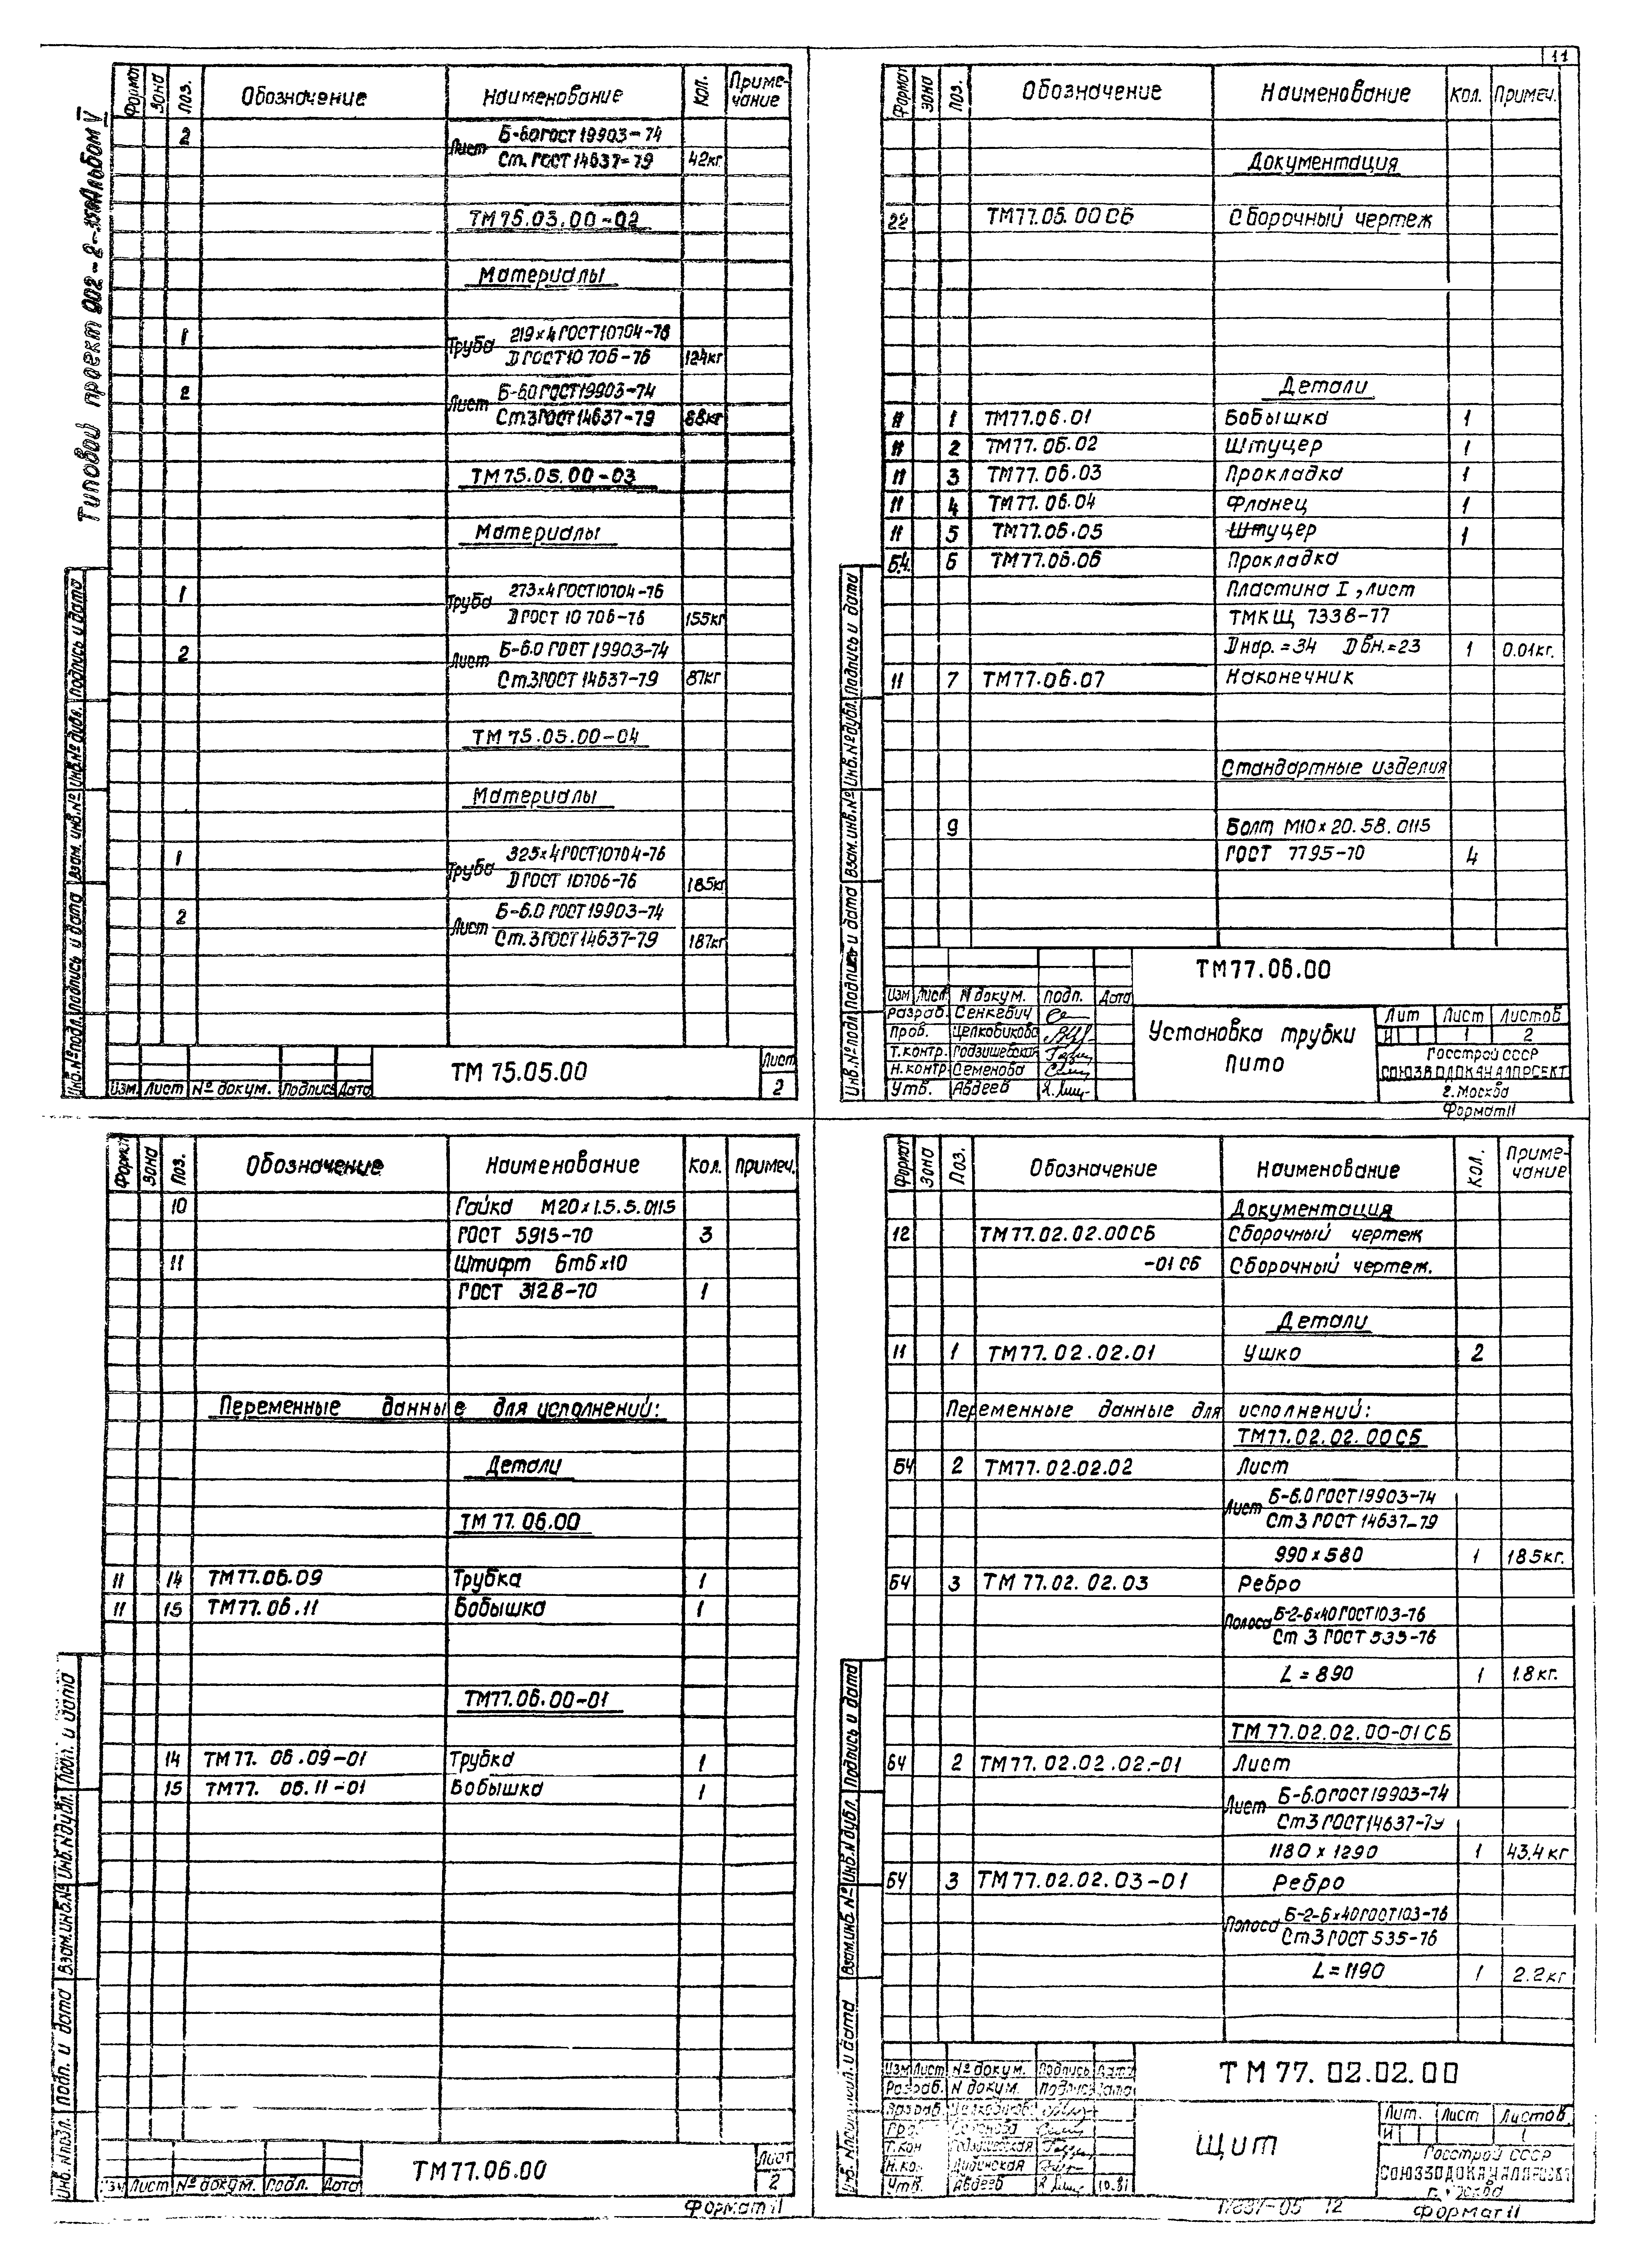 11
Типовой проект 902-2- Альбом V
Формат Зона Поз. Обозначение Наименование Кол. Приме-
чание
2 Лист Б-6.0 ГОСТ 19903-74
Ст. ГОСТ 14637-79 42кг
ТМ 75.03.00-02
Материалы
1 Труба 219×4 ГОСТ 10704-76
Д ГОСТ 10706-76 124кг
2 Лист Б-6.0 ГОСТ 19903-74
Ст.3 ГОСТ 14637-79 88кг
ТМ 75.05.00-03
Материалы
1 Труба 273×4 ГОСТ 10704-76
Д ГОСТ 10706-76 155кг
2 Лист Б-6.0 ГОСТ 19903-74
Ст.3 ГОСТ 14637-79 87кг
ТМ 75.05.00-04
Материалы
1 Труба 325×4 ГОСТ 10704-76
Д ГОСТ 10706-76 185кг
2 Лист Б-6.0 ГОСТ 19903-74
Ст.3 ГОСТ 14637-79 187кг
Инв.№подл. Подпись и дата Взам.инв.№ Инв.№дубл. Подпись и дата
Изм. Лист № докум. Подпись Дата
ТМ 75.05.00
Лист
2
Формат Зона Поз. Обозначение Наименование Кол. Примеч.
Документация
22 ТМ77.06.00СБ Сборочный чертеж
Детали
11 1 ТМ77.06.01 Бобышка 1
11 2 ТМ77.06.02 Штуцер 1
11 3 ТМ77.06.03 Прокладка 1
11 4 ТМ77.06.04 Фланец 1
11 5 ТМ77.06.05 Штуцер 1
Б4. 6 ТМ77.06.06 Прокладка
Пластина I, лист
ТМКЩ 7338-77
Dнар.=34 Dвн.=23 1 0.01кг.
11 7 ТМ77.06.07 Наконечник
Стандартные изделия
9 Болт М10×20.58.0115
ГОСТ 7795-70 4
Инв.№подл. Подпись и дата Взам.инв.№ Инв.№дубл. Подпись и дата
ТМ77.06.00
Изм Лист N докум. Подп. Дата
Разраб. Сенкевич
Пров. Целковикова
Т.контр. Годзишевская
Н.контр. Семенова
Утв. Авдеев
Установка трубки
Пито
Лит Лист Листов
И 1 2
Госстрой СССР
СОЮЗВОДОКАНАЛПРОЕКТ
г.Москва
Формат 11
Формат Зона Поз. Обозначение Наименование Кол. Примеч.
10 Гайка М20×1.5.5.0115
ГОСТ 5915-70 3
11 Штифт 6m6×10
ГОСТ 3128-70 1
Переменные данные для исполнений:
Детали
ТМ 77.06.00
11 14 ТМ77.06.09 Трубка 1
11 15 ТМ77.06.11 Бобышка 1
ТМ77.06.00-01
14 ТМ77.06.09-01 Трубка 1
15 ТМ77.06.11-01 Бобышка 1
Инв. Nподл. Подп. и дата Взам.инв.№ Инв.Nдубл. Подп. и дата
Изм Лист № докум. Подп. Дата
ТМ77.06.00
Лист
2
Формат 11
Формат Зона Поз. Обозначение Наименование Кол. Приме-
чание
Документация
12 ТМ77.02.02.00СБ Сборочный чертеж
-01СБ Сборочный чертеж.
Детали
11 1 ТМ77.02.02.01 Ушко 2
Переменные данные для исполнений:
ТМ77.02.02.00СБ
Б4 2 ТМ77.02.02.02 Лист
Лист Б-6.0 ГОСТ 19903-74
Ст3 ГОСТ 14637-79
990×580 1 18.5кг.
Б4 3 ТМ 77.02.02.03 Ребро
Полоса Б-2-6×40 ГОСТ 103-76
Ст 3 ГОСТ 535-76
L=890 1 1.8кг.
ТМ 77.02.02.00-01СБ
Б4 2 ТМ77.02.02.02-01 Лист
Лист Б-6.0 ГОСТ 19903-74
Ст3 ГОСТ 14637-79
1180×1290 1 43,4кг
Б4 3 ТМ77.02.02.03-01 Ребро
Полоса Б-2-6×40 ГОСТ 103-76
Ст3 ГОСТ 535-76
L=1190 1 2.2кг
Подпись и дата Взам.инв.№ Инв.Nдубл. Подпись и дата
ТМ77.02.02.00
Изм Лист № докум. Подпись Дата
Разраб. N докум. Подпись Дата
Разраб.
Т.кон Годзишевская
Н.ко
Утв. Авдеев 10.81
Щит
Лит. Лист Листов
И 1
Госстрой СССР
СОЮЗВОДОКАНАЛПРОЕКТ
г. Москва
-05 12
Формат 11